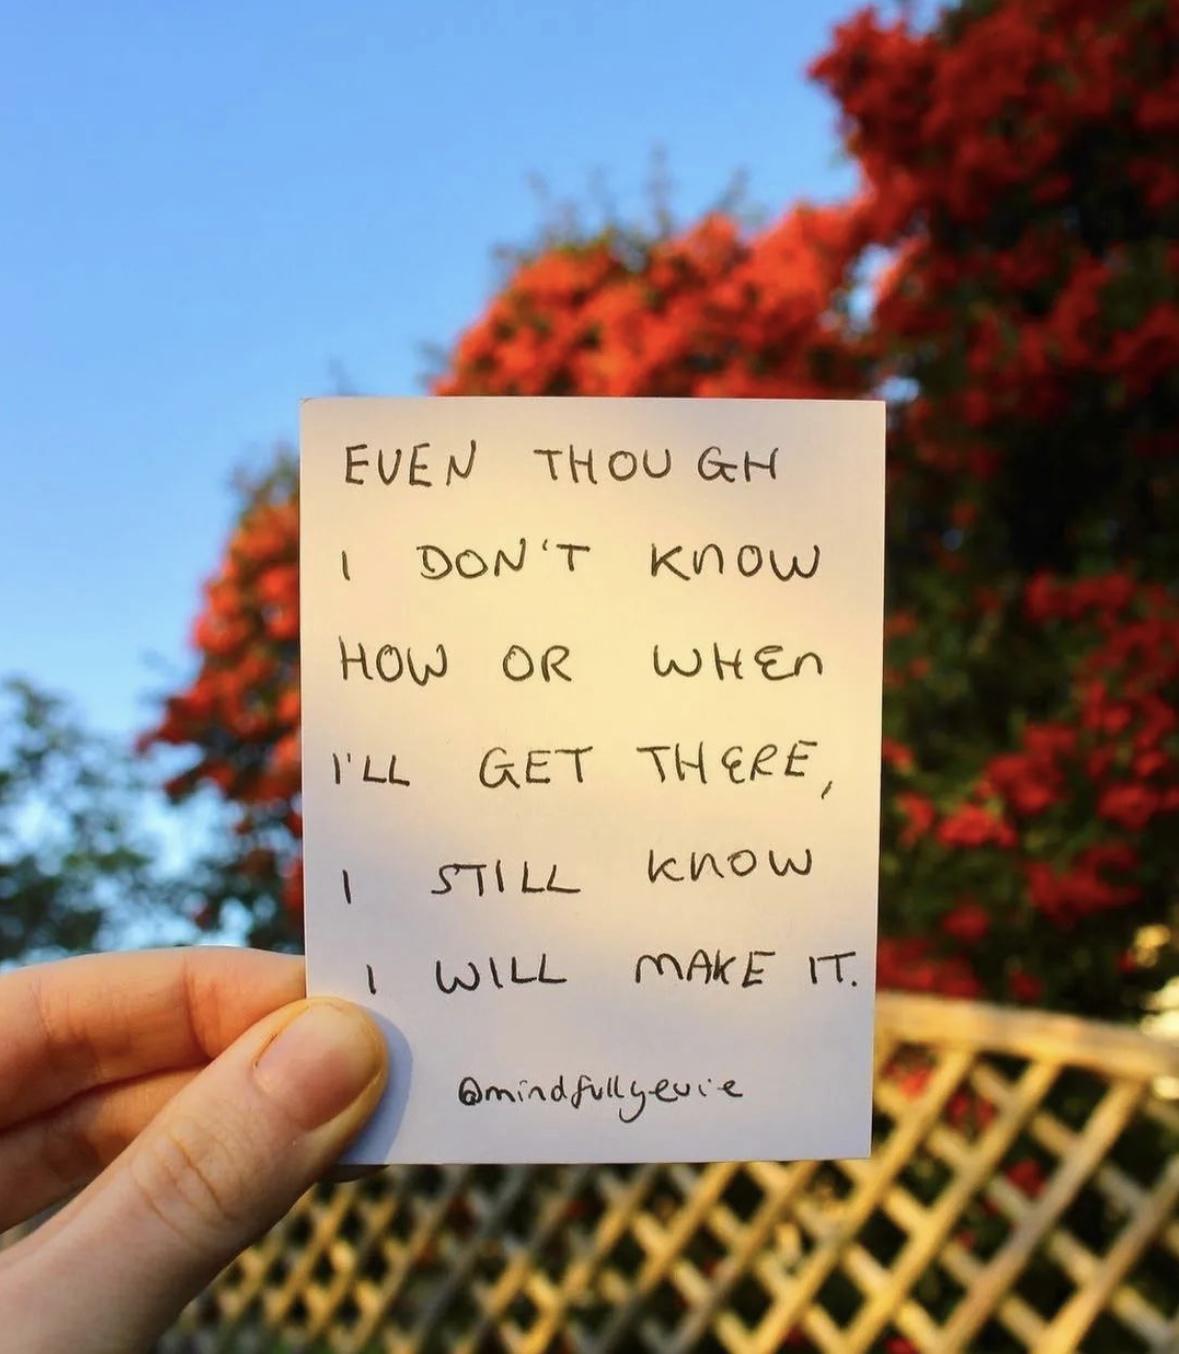 EVEN THOUGH
I DON'T KNOW
HOW OR WHEN
I'LL GET THERE,
I STILL KNOW
I WILL MAKE IT.
@mindfullyevie